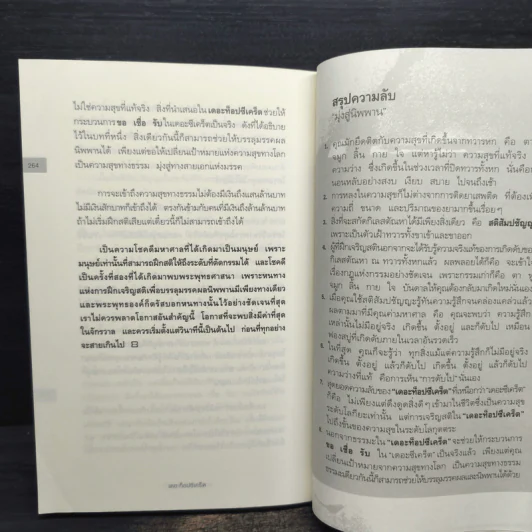 ไม่ใช่ความสุขที่แท้จริง สิ่งที่นำเสนอใน เดอะท็อปซีเคร็ต ช่วยให้
กระบวนการ ขอ เชื่อ รับ ในเดอะซีเคร็ตเป็นจริง ดังที่ได้อธิบาย
ไว้ในบทที่หนึ่ง สิ่งเดียวกันนี้ก็สามารถช่วยให้บรรลุมรรคผล
นิพพานได้ เพียงแต่ขอให้เปลี่ยนเป้าหมายแห่งความสุขทางโลก
เป็นความสุขทางธรรม มุ่งสู่ทางสายเอกแห่งมรรค
264
การจะเข้าถึงความสุขทางธรรมไม่ต้องมีเงินแสนล้านบาท
ไม่มีเงินสักบาทก็เข้าถึงได้ ตรงกันข้ามกับคนที่มีเงินถึงล้านล้านบาท
ถ้าไม่เริ่มฝึกสติเสียแต่เดี๋ยวนี้ก็ไม่สามารถเข้าถึงได้
เป็นความโชคดีมหาศาลที่ได้เกิดมาเป็นมนุษย์ เพราะ
มนุษย์เท่านั้นที่สามารถฝึกสติให้ถึงระดับที่ตัดกรรมได้ และโชคดี
เป็นครั้งที่สองที่ได้เกิดมาพบพระพุทธศาสนา เพราะหนทาง
แห่งการฝึกเจริญสติเพื่อบรรลุมรรคผลนิพพานมีเพียงทางเดียว
และพระพุทธองค์ก็ตรัสบอกหนทางนั้นไว้อย่างชัดเจนที่สุด
เราไม่ควรพลาดโอกาสอันสำคัญนี้ โอกาสที่จะพบสิ่งมีค่าที่สุด
ในจักรวาล และควรเริ่มตั้งแต่วินาทีนี้เป็นต้นไป ก่อนที่ทุกอย่าง
จะสายเกินไป
เดอะท็อปซีเคร็ต
สรุปความลับ
"มุ่งสู่นิพพาน"
คุณมักยึดติดกับความสุขที่เกิดขึ้นจากทวารหก คือ ตา
จมูก ลิ้น กาย ใจ แต่หารู้ไม่ว่า ความสุขที่แท้จริง
ความว่าง ซึ่งเกิดขึ้นในช่วงเวลาที่ปิดทวารทั้งหก นั่นคือ
นอนหลับอย่างสงบ เงียบ สบาย ไปจนถึงเช้า
การหลงในความสุขก็ไม่ต่างจากการติดยาเสพติด ที่ต้องเพิ่ม
ความถี่ ขนาด และปริมาณของยามากขึ้นเรื่อยๆ
สิ่งที่จะสกัดกิเลสตัณหาได้มีเพียงสิ่งเดียว คือ สติสัมปชัญญะ
เพราะเป็นตัวเฝ้าทวารทั้งขาเข้าและขาออก
ผู้ที่ฝึกเจริญสตินอกจากจะได้รับรู้ความจริงแท้ของการเกิดดับของ
กิเลสตัณหา ณ ทวารทั้งหกแล้ว ผลพลอยได้ก็คือ จะเข้าใจ
เรื่องกฎแห่งกรรมอย่างชัดเจน เพราะกรรมเก่าก็คือ ตา หู
จมูก ลิ้น กาย ใจ บังคับวิถีให้คุณต้องกลับมาเกิดใหม่นั่นเอง
เมื่อคุณใช้สติสัมปชัญญะรู้ทันความรู้สึกจนคล่องแคล่วแล้ว
ผลตามมาที่มีคุณค่ามหาศาล คือ คุณจะพบว่า ความรู้สึก
เหล่านั้นไม่มีอยู่จริง เกิดขึ้น ตั้งอยู่ และก็ดับไป เหมือน
ฟองสบู่ที่เกิดดับภายในเวลาอันรวดเร็ว
ในที่สุด คุณก็จะรู้ว่า ทุกสิ่งแม้แต่ความรู้สึกก็ไม่มีอยู่จริง
เกิดขึ้น ตั้งอยู่ แล้วก็ดับไป เกิดขึ้น ตั้งอยู่ แล้วก็ดับไป
ความว่างที่แท้ คือการเห็น "การดับไป" นั่นเอง
สุดยอดความลับของ "เดอะท็อปซีเคร็ต" ที่เหนือกว่า "เดอะซีเคร็ต"
ก็คือ ไม่เพียงแต่ดึงดูดสิ่งดีๆ เข้ามาในชีวิตซึ่งเป็นความสุข
ระดับโลกียะเท่านั้น แต่การเจริญสติใน "เดอะท็อปซีเคร็ต"
ไปถึงขั้นของความสุขในระดับโลกุตตระ
นอกจากธรรมะใน "เดอะท็อปซีเคร็ต" จะช่วยให้กระบวนการ
ขอ เชื่อ รับ ใน "เดอะซีเคร็ต" เป็นจริงแล้ว เพียงแต่คุณ
เปลี่ยนเป้าหมายจากความสุขทางโลก เป็นความสุขทางธรรม
ธรรมะเดียวกันนี้ก็สามารถช่วยให้บรรลุมรรคผลและนิพพานได้ด้วย